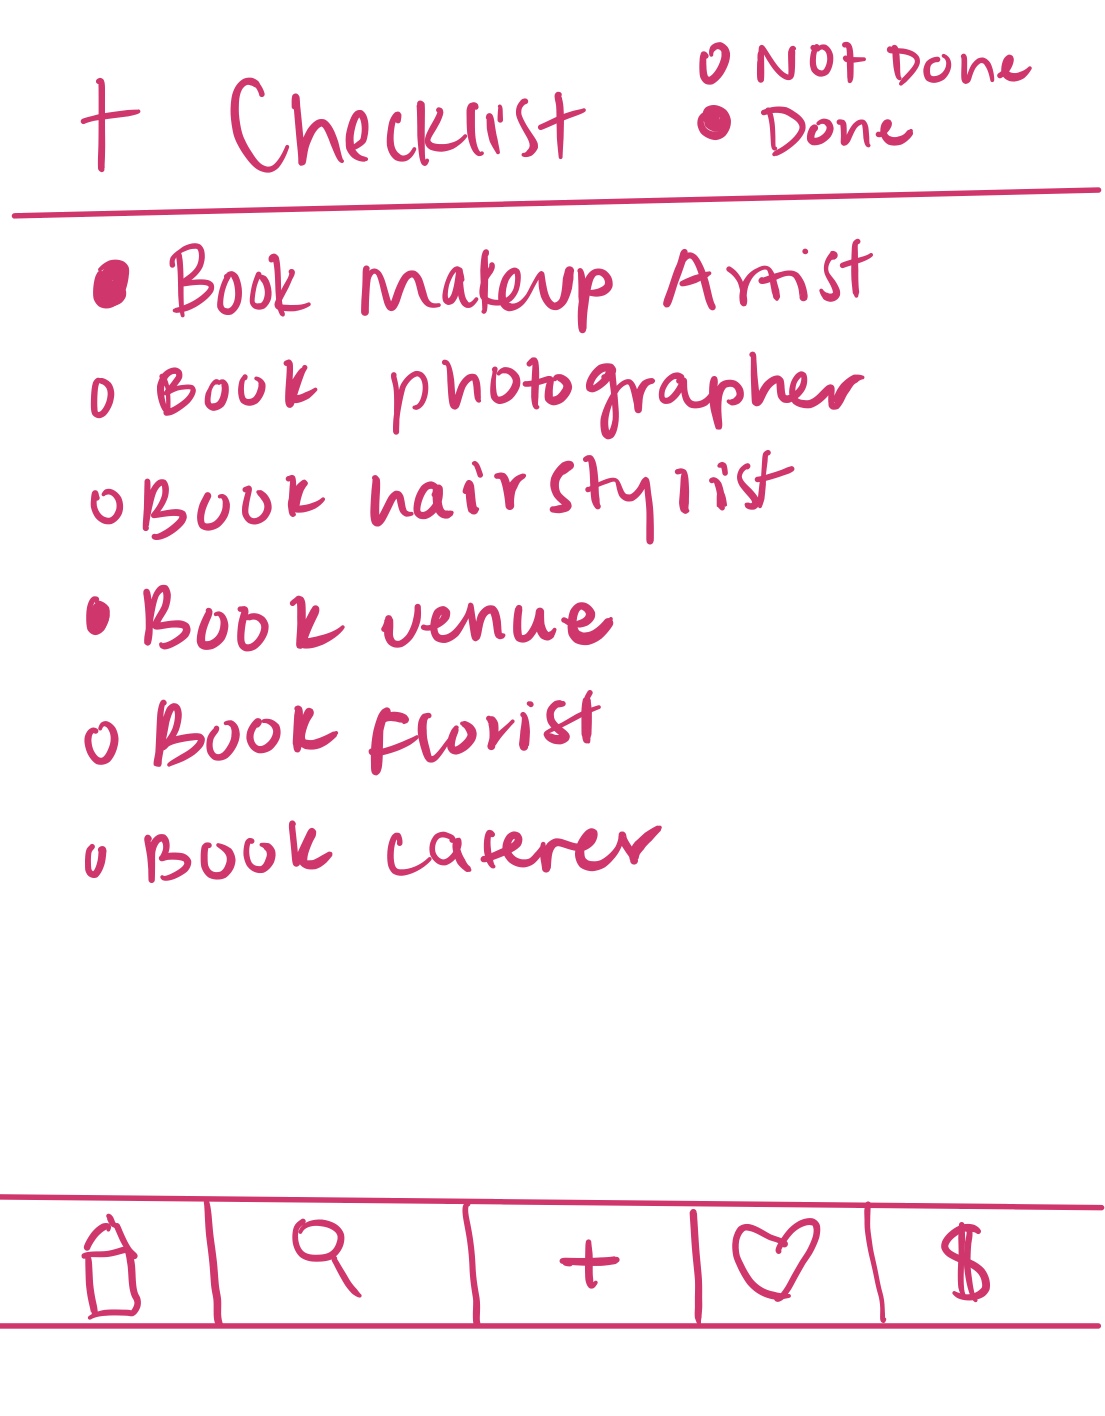 + Checklist
o Not Done
● Done
● Book makeup Artist
o Book photographer
o Book hairstylist
● Book venue
o Book florist
o Book caterer
+ $